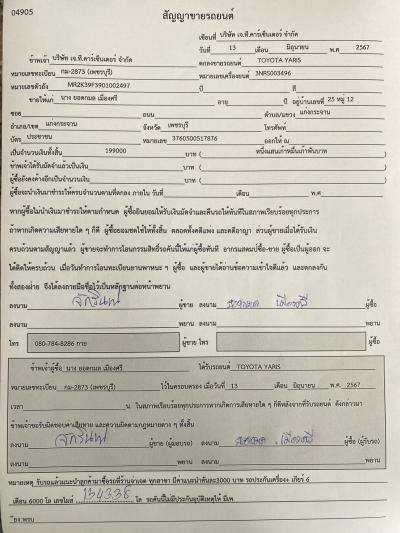 04905
สัญญาขายรถยนต์
เขียนที่ บริษัท เจ.ที.คาร์เซ็นเตอร์ จำกัด
วันที่ 13 เดือน มิถุนายน พ.ศ 2567
ข้าพเจ้า บริษัท เจ.ที.คาร์เซ็นเตอร์ จำกัด ตกลงขายรถยนต์ TOYOTA YARIS
หมายเลขทะเบียน กม-2873 (เพชรบุรี) หมายเลขเครื่องยนต์ 3NRS003496
หมายเลขตัวถัง MR2K39F3901002497 สี
ขายให้แก่ นาง ยอดกมล เมืองศรี อายุ ปี อยู่บ้านเลขที่ 25 หมู่ 12
ซอย ถนน ตำบล/แขวง แก่งกระจาน
อำเภอ/เขต แก่งกระจาน จังหวัด เพชรบุรี โทรศัพท์
บัตร ประชาชน หมายเลข 3760500517876 ออกให้ ณ
เป็นจำนวนเงินทั้งสิ้น 199000 บาท ( หนึ่งแสนเก้าหมื่นเก้าพันบาท
ข้าพเจ้าได้รับมัดจำแล้วเป็นเงิน บาท (
ผู้ซื้อยังคงค้างอีกเป็นจำนวนเงิน บาท (
ผู้ซื้อจะนำเงินมาชำระให้ครบจำนวนตามที่ตกลง ภายใน วันที่ เดือน พ.ศ
หากผู้ซื้อไม่นำเงินมาชำระให้ตามกำหนด ผู้ซื้อยินยอมให้ริบเงินมัดจำและคืนรถให้ทันทีในสภาพเรียบร้อยทุกประการ
ถ้าหากเกิดความเสียหายใด ๆ ก็ดี ผู้ซื้อยอมชดใช้ให้ทั้งสิ้น ตลอดทั้งคดีแพ่ง และคดีอาญา ส่วนผู้ขายเมื่อได้รับเงิน
ครบถ้วนตามสัญญาแล้ว ผู้ขายจะทำการโอนกรรมสิทธิ์รถคันนี้ให้แก่ผู้ซื้อทันที อากรแสตมป์ซื้อ-ขาย ผู้ซื้อเป็นผู้ออก จะ
ได้คิดให้ครบถ้วน เมื่อวันทำการโอนทะเบียนยานพาหนะ ฯ ผู้ซื้อ และผู้ขายได้อ่านข้อความเข้าใจดีแล้ว และตกลงกัน
ทั้งสองฝ่าย จึงได้ลงลายมือชื่อไว้เป็นหลักฐานต่อหน้าพยาน
ลงนาม ผู้ขาย ลงนาม ผู้ซื้อ
ลงนาม พยาน ลงนาม พยาน
โทร 080-784-8286 กาย ผู้ขาย โทร ผู้ซื้อ
ข้าพเจ้าผู้ซื้อ นาง ยอดกมล เมืองศรี ได้รับรถยนต์ TOYOTA YARIS
หมายเลขทะเบียน กม-2873 (เพชรบุรี) ไว้ในครอบครอง เมื่อวันที่ 13 เดือน มิถุนายน พ.ศ 2567
เวลา น. ในสภาพเรียบร้อยทุกประการหากเกิดการเสียหายใด ๆ ก็ดีหลังจากที่รับรถยนต์ ดังกล่าวมา
ข้าพเจ้าขอรับผิดชอบค่าเสียหาย และความผิดตามกฎหมายต่าง ๆ ทั้งสิ้น
ลงนาม ผู้ขาย (ผู้มอบรถ) ลงนาม ผู้ซื้อ (ผู้รับรถ)
ลงนาม พยาน ลงนาม พยาน
หมายเหตุ รับรถแล้วแนะนำลูกค้ามาซื้อรถที่ร้านจ่าเจต ทุกสาขา มีค่าแนะนำคันละ3000 บาท รถประกันเครื่อง+ เกียร์ 6
เดือน 6000 โล เลขไมล์ 134338 โล รถคันนี้ไม่มีประกันอุบัติเหตุให้ มีพ